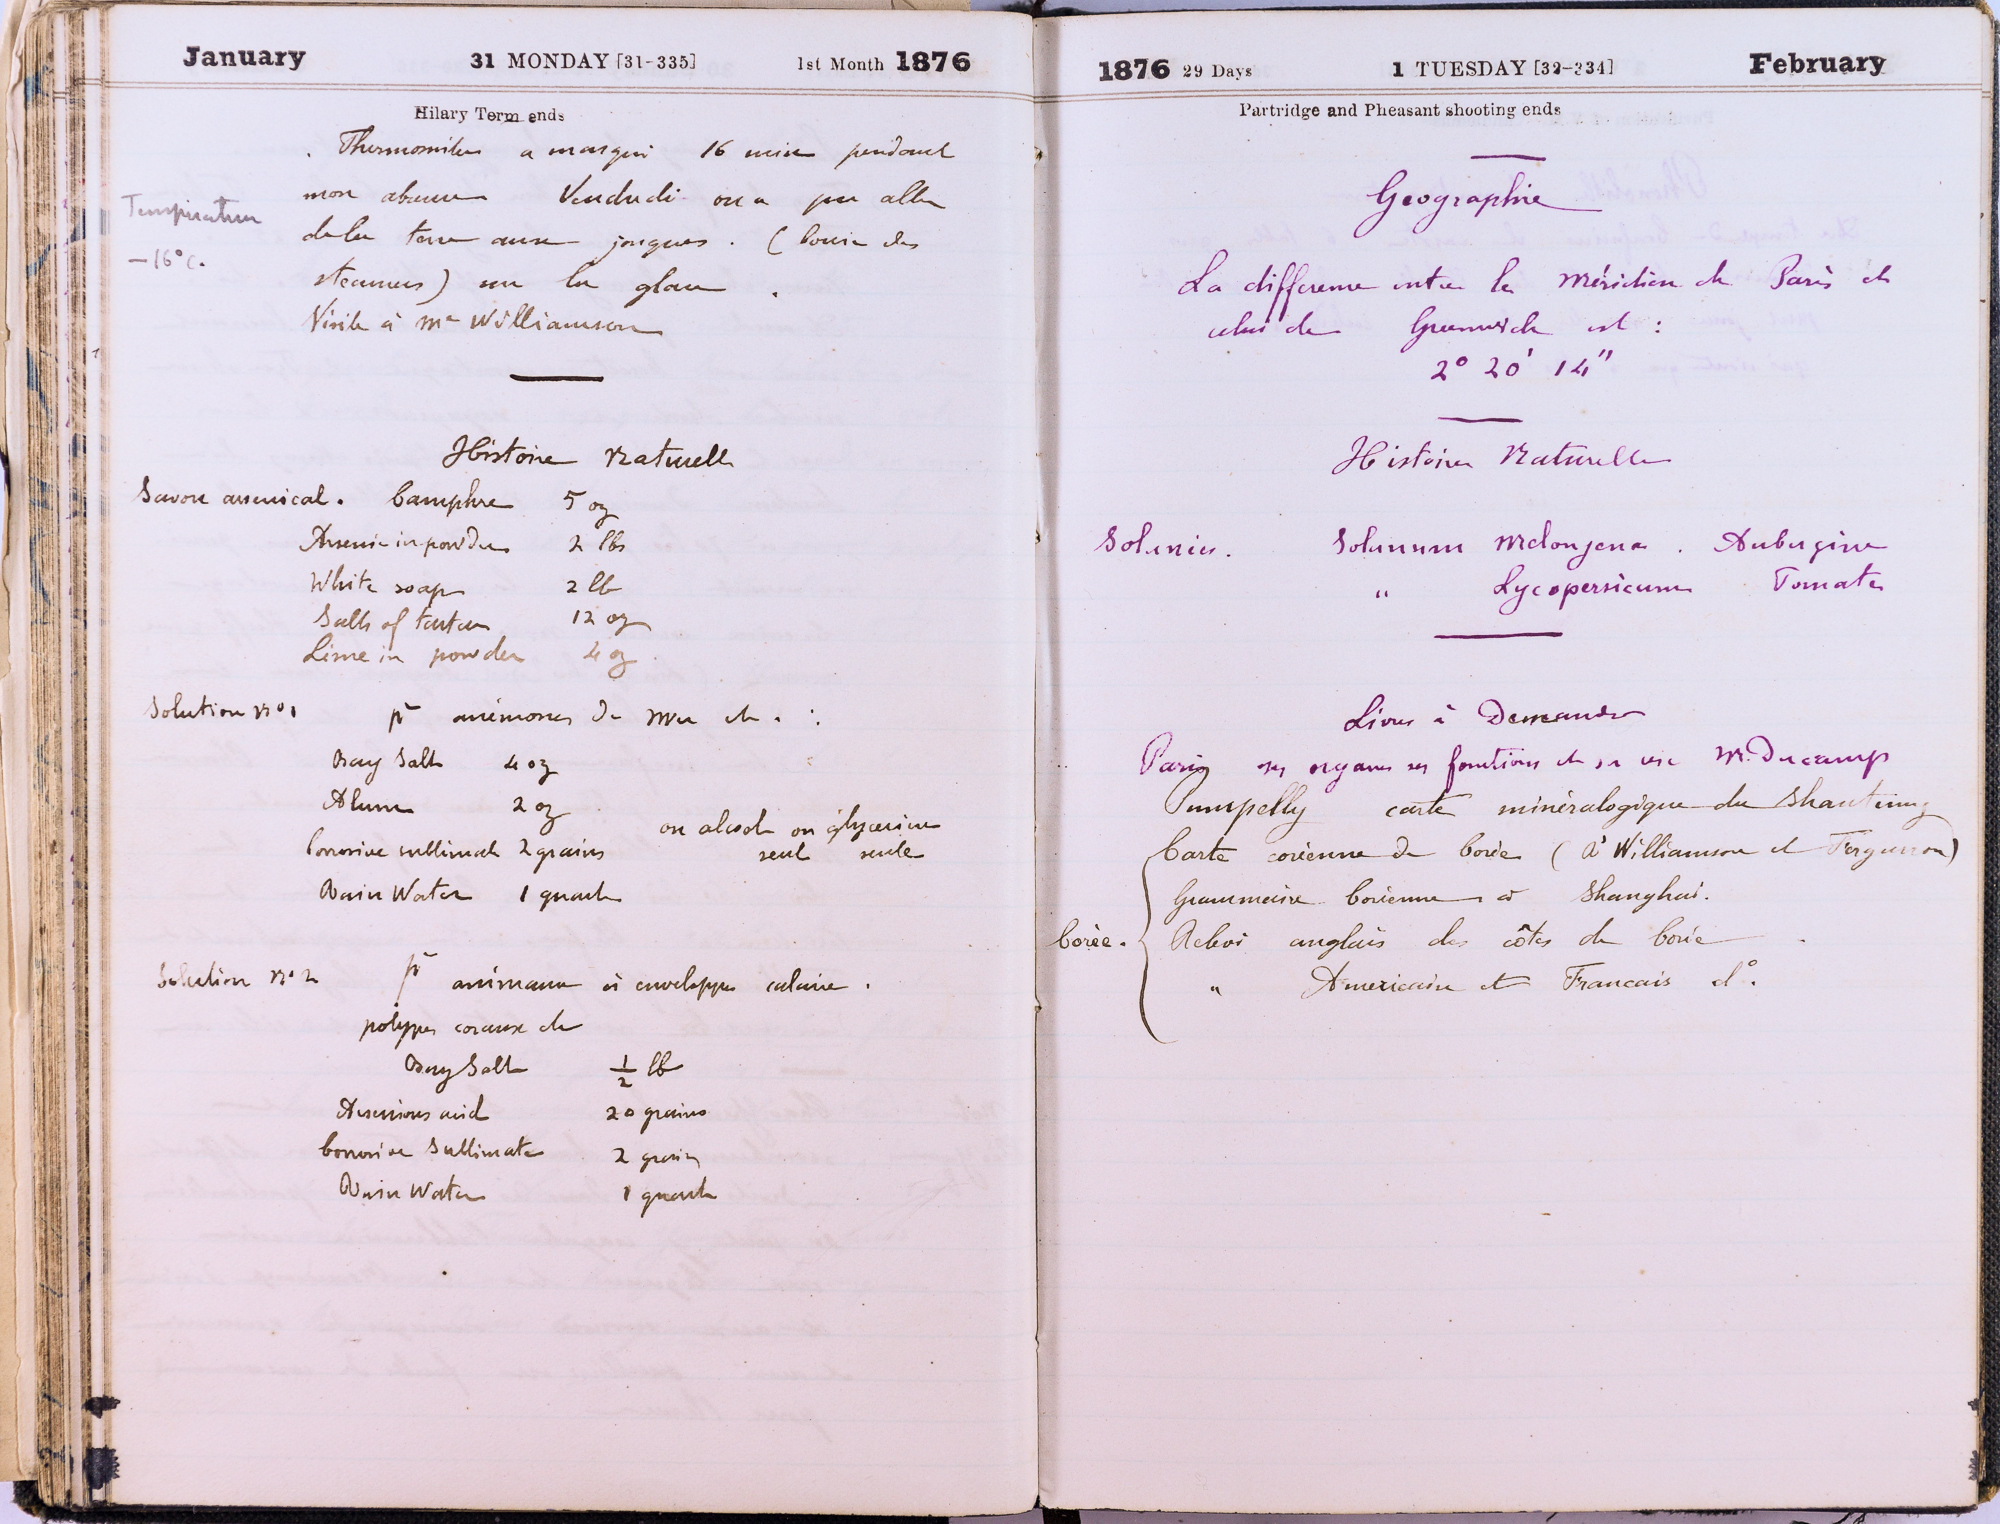 January 31 MONDAY [31-335] 1st Month 1876
Hilary Term ends
Thermomètre a marqué 16 pendant
mon absence Vendredi on a pu aller
Température
de la terre aux jonques. (
-16°c.
steamers) sur la glace.
Visite à Mr Williamson
Histoire Naturelle
Savon arsenical. Camphre 5 oz
Arsenic in powder 2 lbs
White soap 2 lb
Salts of tartar 12 oz
Lime in powder 4 oz
Solution No 1 pr anémones de Mer etc. :
Bay Salt 4 oz
Alum 2 oz
ou alcool ou glycérine
Corrosive sublimate 2 grains
seul seule
Rain Water 1 quart
Solution No 2 pr animaux à enveloppe calcaire.
polypes coraux etc
Bay Salt 1/2 lb
Arsenious acid 20 grains
Corrosive Sublimate 2 grains
Rain Water 1 quart
1876 29 Days 1 TUESDAY [32-334] February
Partridge and Pheasant shooting ends
Geographie
La difference entre le Méridien de Paris et
celui de Greenwich est :
2° 20' 14"
Histoire Naturelle
Solanées. Solanum Melongena. Aubergine
" Lycopersicum Tomate
Livres à Demander
Paris ses organes ses fonctions et sa vie M. Ducamp
Pumpelly carte minéralogique du Shantung
Carte coréenne de Corée (à Williamson et Fergusson)
Grammaire Coréenne à Shanghai.
Corée. Relevé anglais des côtes de Corée
" Americain et Francais do.